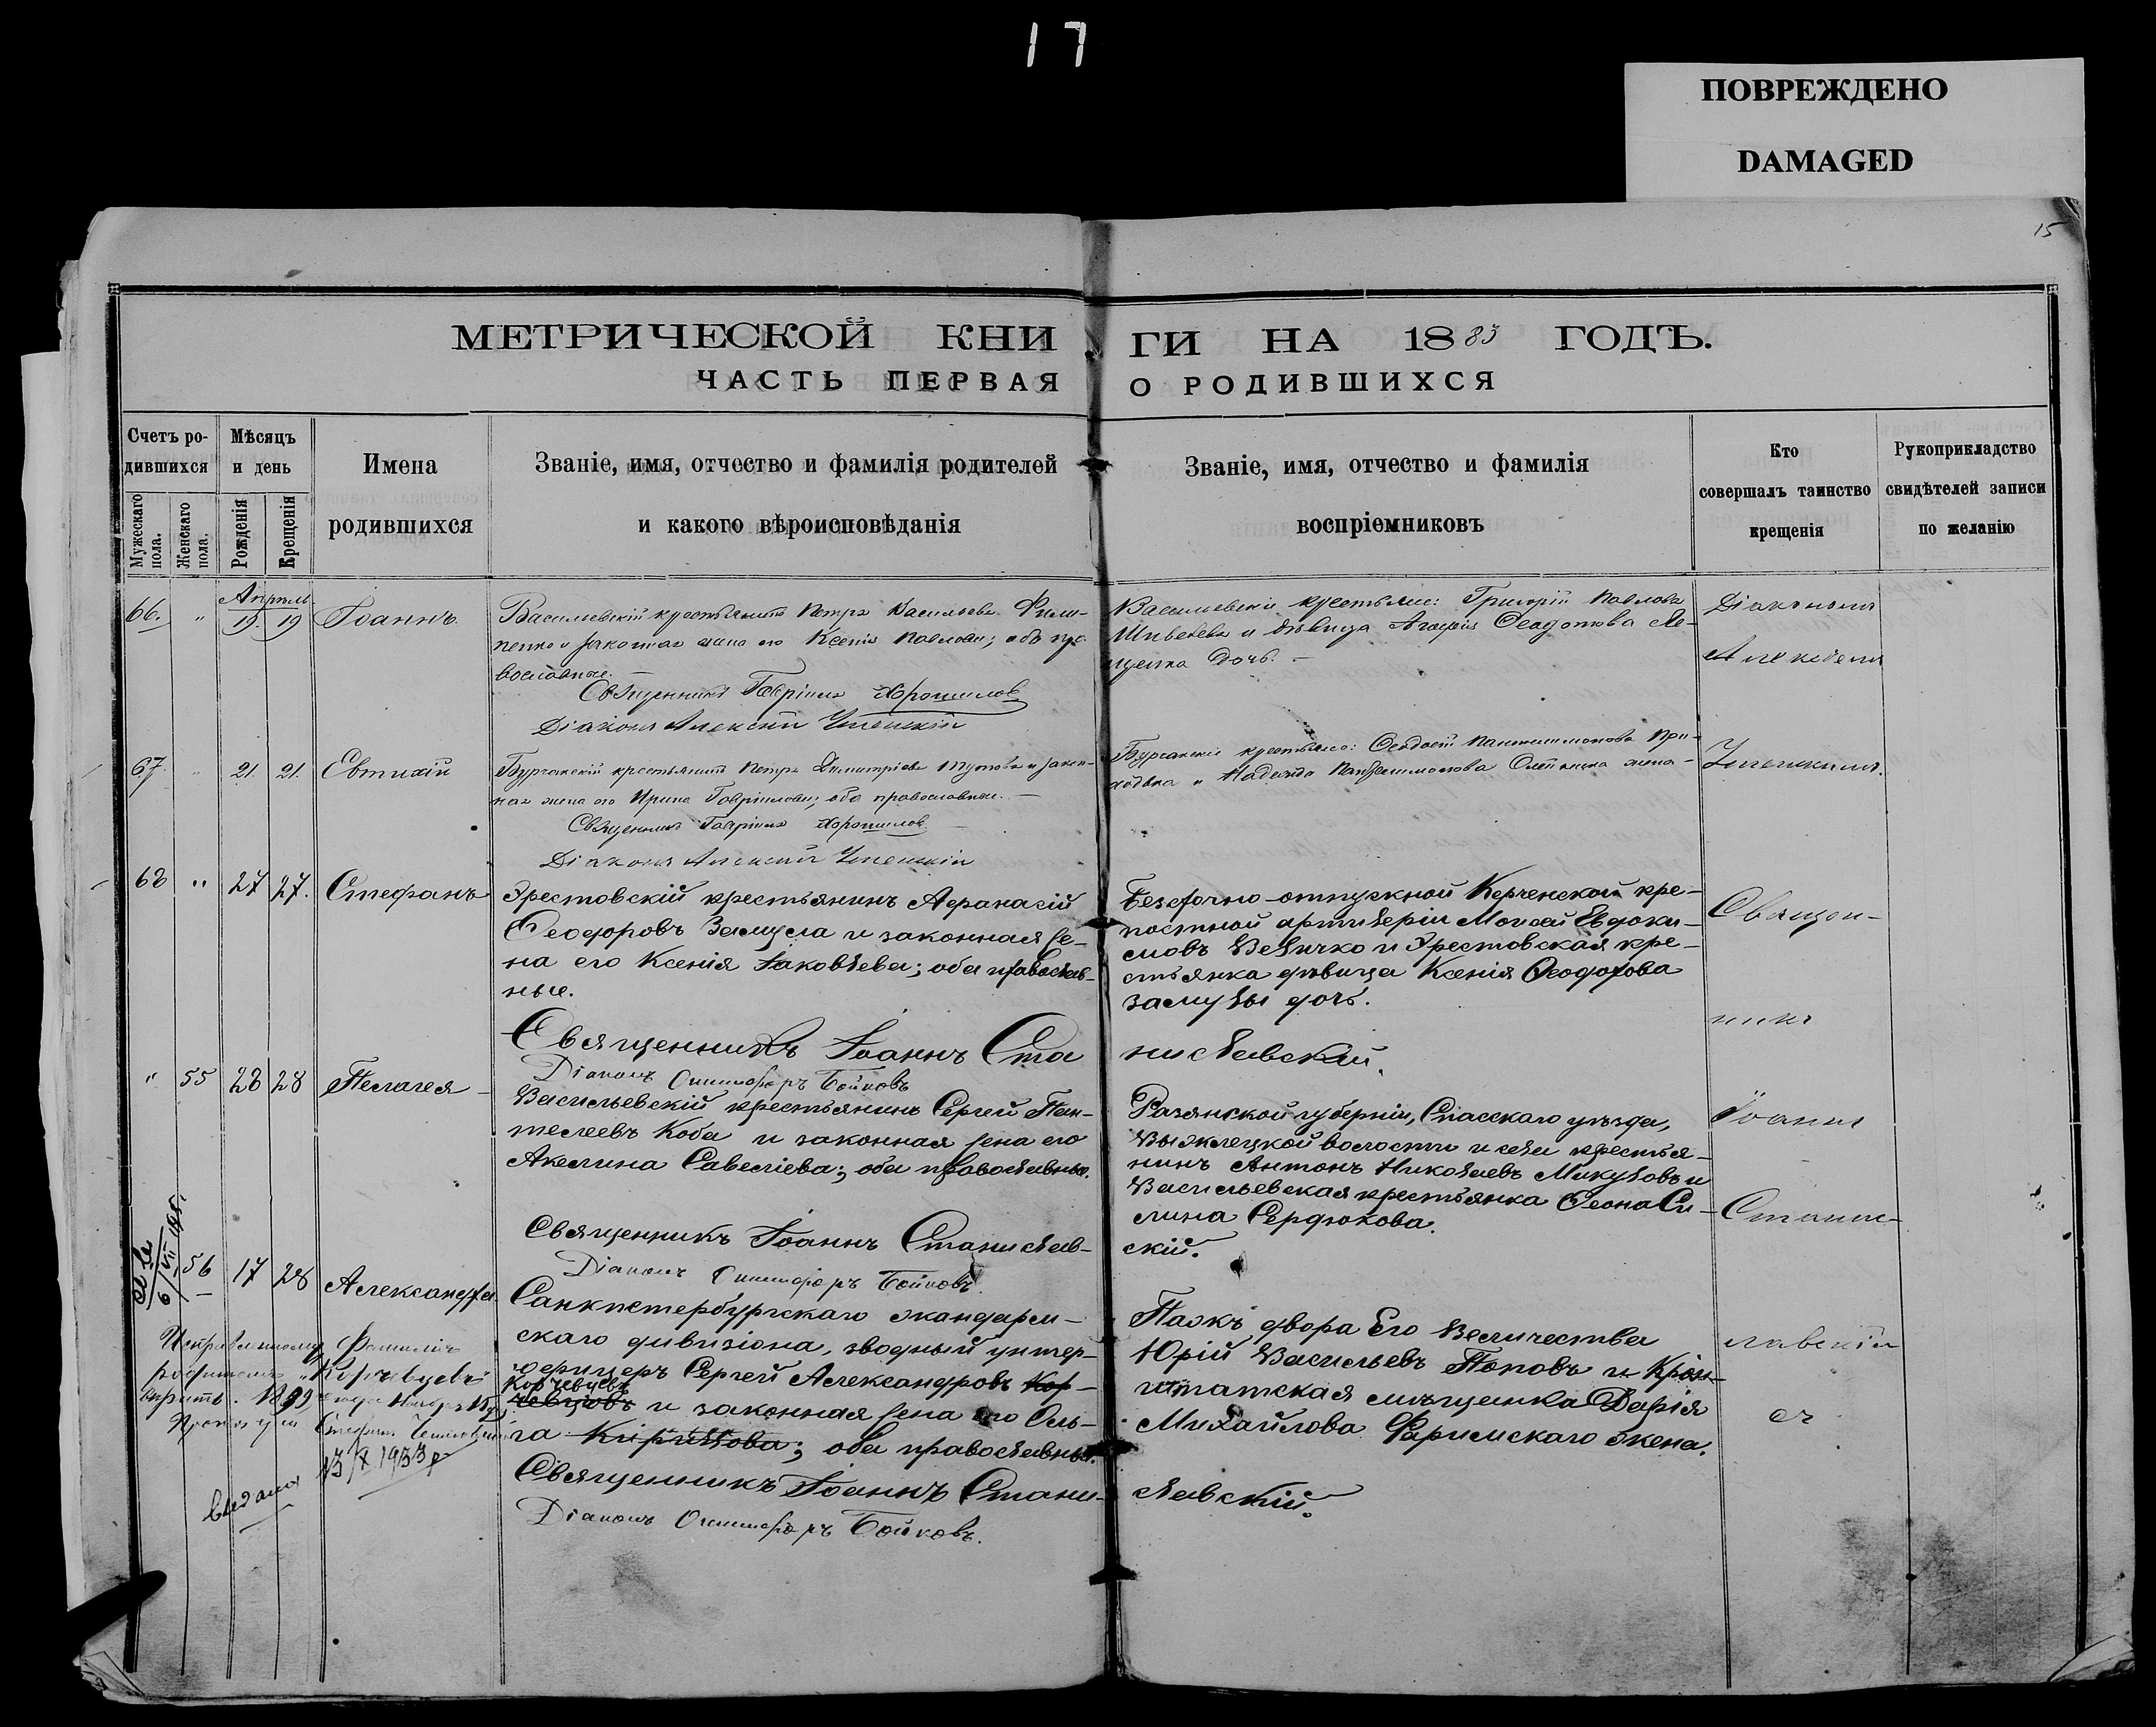 17
ПОВРЕЖДЕНО
DAMAGED
15
МЕТРИЧЕСКОЙ КНИ ГИ НА 1883 ГОДЪ.
ЧАСТЬ ПЕРВАЯ О РОДИВШИХСЯ
Счетъ ро-
дившихся
Мужескаго
пола.
Женскаго
пола.
Мѣсяцъ
и день
Рожденія
Крещенія
Имена
родившихся
Званіе, имя, отчество и фамилія родителей
и какого вѣроисповѣданія
Званіе, имя, отчество и фамилія
воспріемниковъ
Кто
совершалъ таинство
крещенія
Рукоприкладство
свидѣтелей записи
по желанію
Апрѣль
66. " 19 19 Іоаннъ
Васильевскій крестьянинъ Петръ Васильевъ Фили-
пенко и законная жена его Ксенія Павлова; обѣ пра-
вославные.
Священникъ Гавріилъ Хорошилов
Діаконъ Алексій
Васильевскіе крестьяне: Григорій Павловъ
и дѣвица Агафія Феодотова Ле-
щенка дочь.
Діакономъ
Алексіемъ
67. " 21. 21. Евтихій
крестьянинъ Петръ Димитріевъ и закон-
ная жена его Ирина Гавріилова; оба православные.
Священникъ Гавріилъ Хорошилов
Діаконъ Алексій
крестьяне: Феодотъ Пантелимоновъ При-
ходька и Надежда Пантелимонова жена
68 " 27 27. Стефанъ
Эрестовскій крестьянинъ Афанасій
Феодоровъ Замула и законная же-
на его Ксенія Іаковлева; оба православ-
ные.
Священникъ Іоаннъ Ста
Діаконъ Онисифоръ Бойковъ
Безсрочно-отпускной Керченской кре-
постной артилеріи Моисей Евдоки-
мовъ Величко и Эрестовская кре-
стьянка дѣвица Ксенія Феодорова
Замулы дочь.
ниславский.
Священ-
никъ
" 55 28 28 Пелагея
Васильевскій крестьянинъ Сергей Пан-
телеевъ Коба и законная жена его
Акелина Савеліева; оба православные.
Священникъ Іоаннъ Станислав-
Діаконъ Онисифоръ Бойковъ.
Рязанской губерніи, Спасскаго уѣзда,
волости и села крестья-
нинъ Антонъ Николаевъ Микуловъ и
Васильевская крестьянка Феона Си-
лина Сердюкова.
скій.
Іоаннъ
Станис-
56 17 28 Александра
Санкпетербургскаго жандарм-
скаго дивизіона, зводный унтер-
офицеръ Сергей Александровъ Кор-
Корчевцевъ
чевцовъ и законная жена его Оль-
га Кирилова; оба православные.
Священникъ Іоаннъ Стани-
Діаконъ Онисифоръ Бойковъ.
Пажъ двора Его Величества
Юрій Васильевъ Поповъ и Крон-
штатская мѣщенка Дарія
Михайлова Фаримскаго жена.
славскій.
лавскій
Исправленному фамилію
родителя "Корчевцевъ"
вѣрить. 1899 года Ноября 15 д.
Протоіерей Стефанъ
13/X 1933 г
выдано